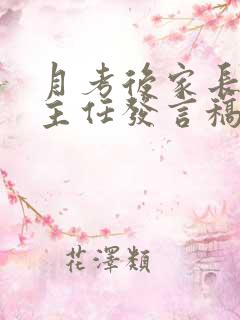 月考後家長
主任發言稿
花澤類